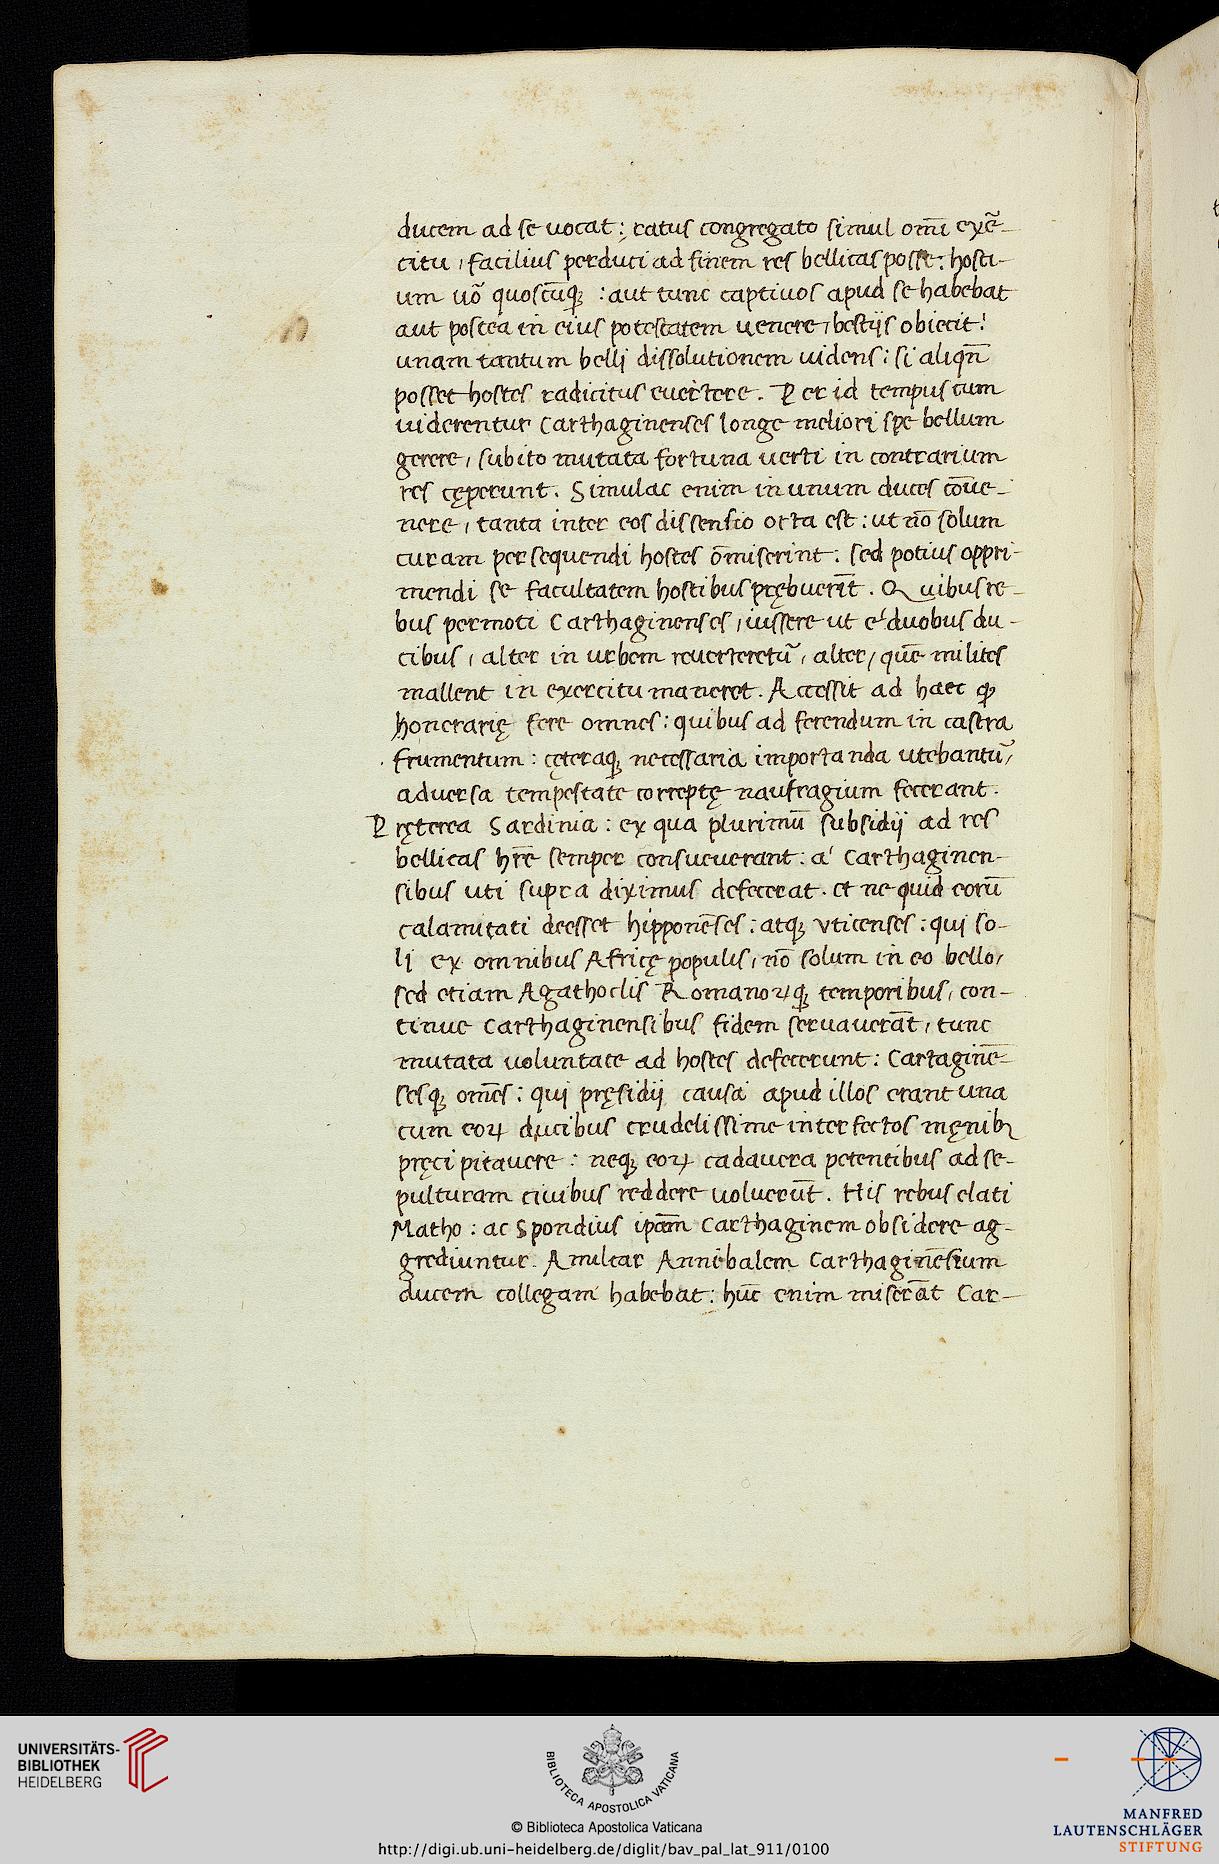 ducem ad se uocat: ratus congregato simul om̄i exẽ-
citu, facilius perduci ad finem res bellicas posse: hosti-
um uõ quoscūq; : aut tunc captiuos apud se habebat
aut postea in eius potestatem uenere, bestijs obiecit!
unam tantum bellj dissolutionem uidens: si aliqn̄
posset hostes radicitus euertere. Per id tempus cum
uiderentur Carthaginenses longe meliorj spe bellum
gerere, subito mutata fortuna uerti in contrarium
res cęperunt. Simulac enim in unum duces cōue-
nere, tanta inter eos dissensio orta est: ut nō solum
curam persequendi hostes ōmiserint: sed potius oppri-
mendi se facultatem hostibus prębuerīt. Quibus re-
bus permoti Carthaginenses, iussere ut é duobus du-
cibus, alter in urbem reuerteretũ, alter, quē milites
mallent in exercitu maneret. Accessit ad haec ꝙ
honerarię fere omnes: quibus ad ferendum in castra
frumentum: cęteraq; necessaria importanda utebantũ,
aduersa tempestate correptę naufragium fecerant.
Pręterea Sardinia: ex qua plurimū subsidij ad res
bellicas hr̄e semper consueuerant: á Carthaginen-
sibus uti supra diximus defecerat. et ne quid eorū
calamitati deesset hipponēses: atq; vticenses: quj so-
lj ex omnibus Africę populis, nō solum in eo bello,
sed etiam Agathoclis Romanoꝝq; temporibus, con-
tinue Carthaginensibus fidem seruauerāt, tunc
mutata voluntate ad hostes defecerunt: Cartaginē-
sesq; om̄es: quj pręsidij causa apud illos erant una
cum eoꝝ ducibus crudelissime interfectos męnibꝫ
pręcipitauere: neq; eoꝝ cadauera petentibus ad se-
pulturam ciuibus reddere uoluerūt. His rebus elati
Matho: ac Spondius ip̄am Carthaginem obsidere ag-
grediuntur. Amilcar Annibalem Carthaginēsium
ducem collegam habebat: hūc enim miserāt Car-
UNIVERSITÄTS-
BIBLIOTHEK
HEIDELBERG
BIBLIOTECA APOSTOLICA VATICANA
© Biblioteca Apostolica Vaticana
http://digi.ub.uni-heidelberg.de/diglit/bav_pal_lat_911/0100
MANFRED
LAUTENSCHLÄGER
STIFTUNG